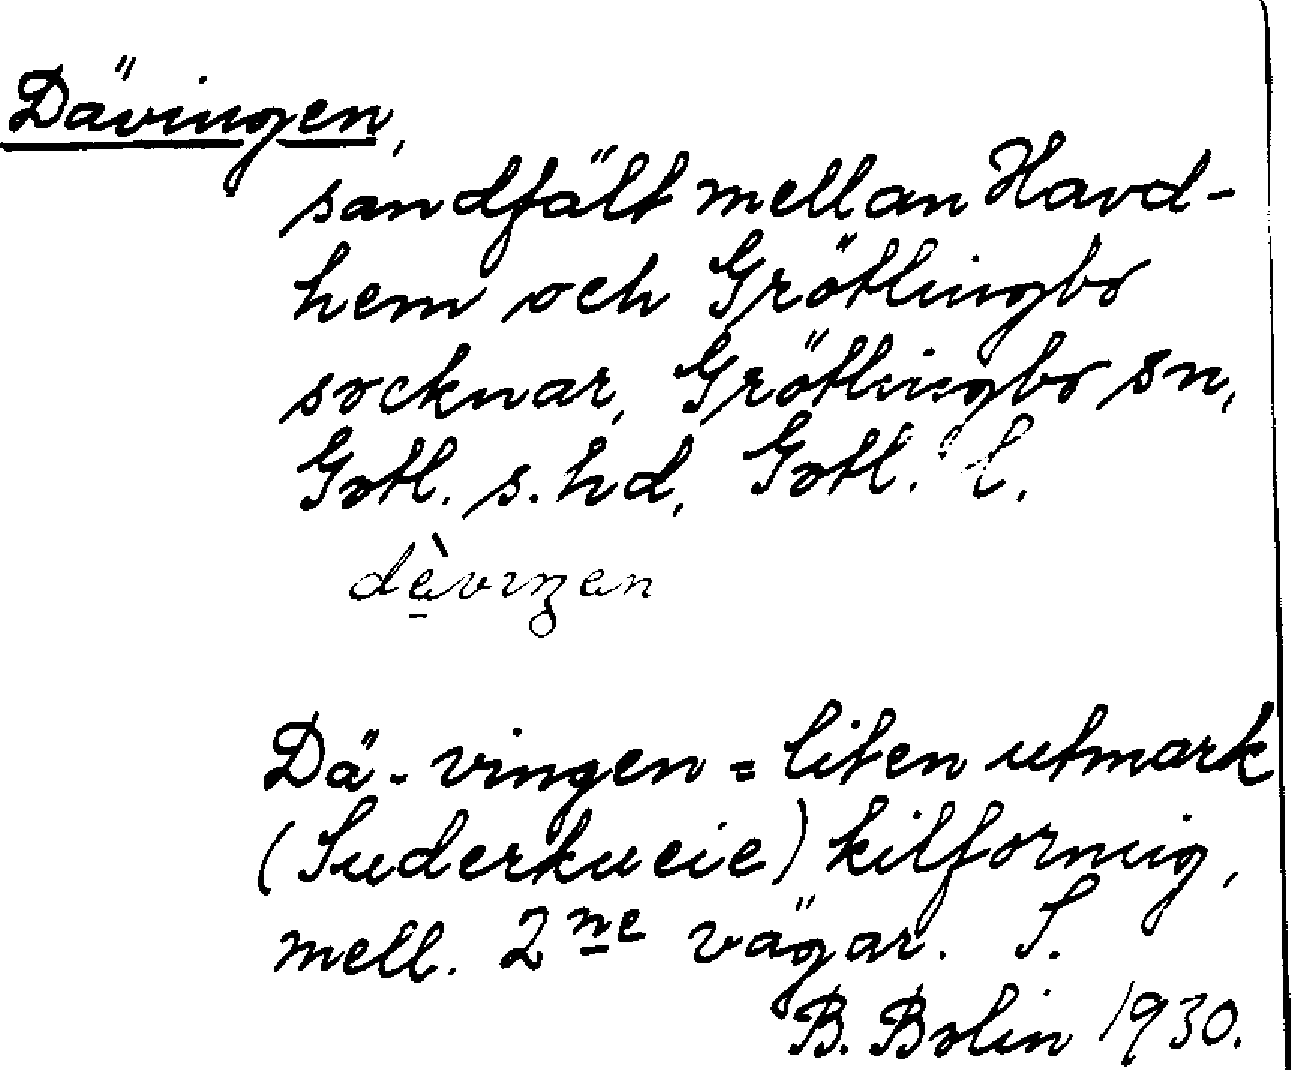 Dävingen,
sandfält mellan Havd-
hem och Grötlingbo
socknar, Grötlingbo sn,
Gotl. s. hd, Gotl. l.
dèviŋen
Dä-vingen = liten utmark
(Suderkvie) kilformig,
mell. 2ne vägar. S.
B. Bolin 1930.